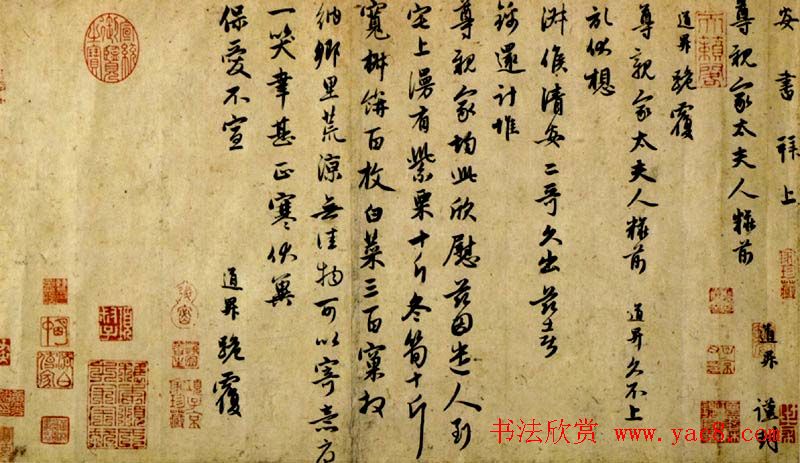 安書拜上
道昇謹封
尊親家太夫人粧前
道昇跪覆
尊親家太夫人粧前 道昇久不上
狀伏想
淋候清安二哥久出茲喜
錦還計惟
尊親家均此欣慰茲因遣人到
宅上謾有紫栗十斤冬筍十斤
寬餅百枚白菜三百窠拜
納鄉里荒涼無佳物可以寄意
一笑幸甚正寒伏冀
保愛不宣
道昇跪覆
书法欣赏 www.yac8.com